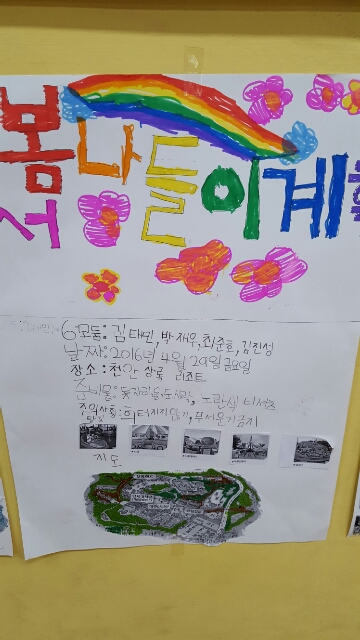 봄나들이계획
서
6모둠: 김태민, 박재우, 최준호, 김진성
날짜: 2016년 4월 29일 금요일
장소: 천안 상록 리조트
준비물: 돗자리, 노란색 티셔츠
주의사항: 흩어지지않기,
지도